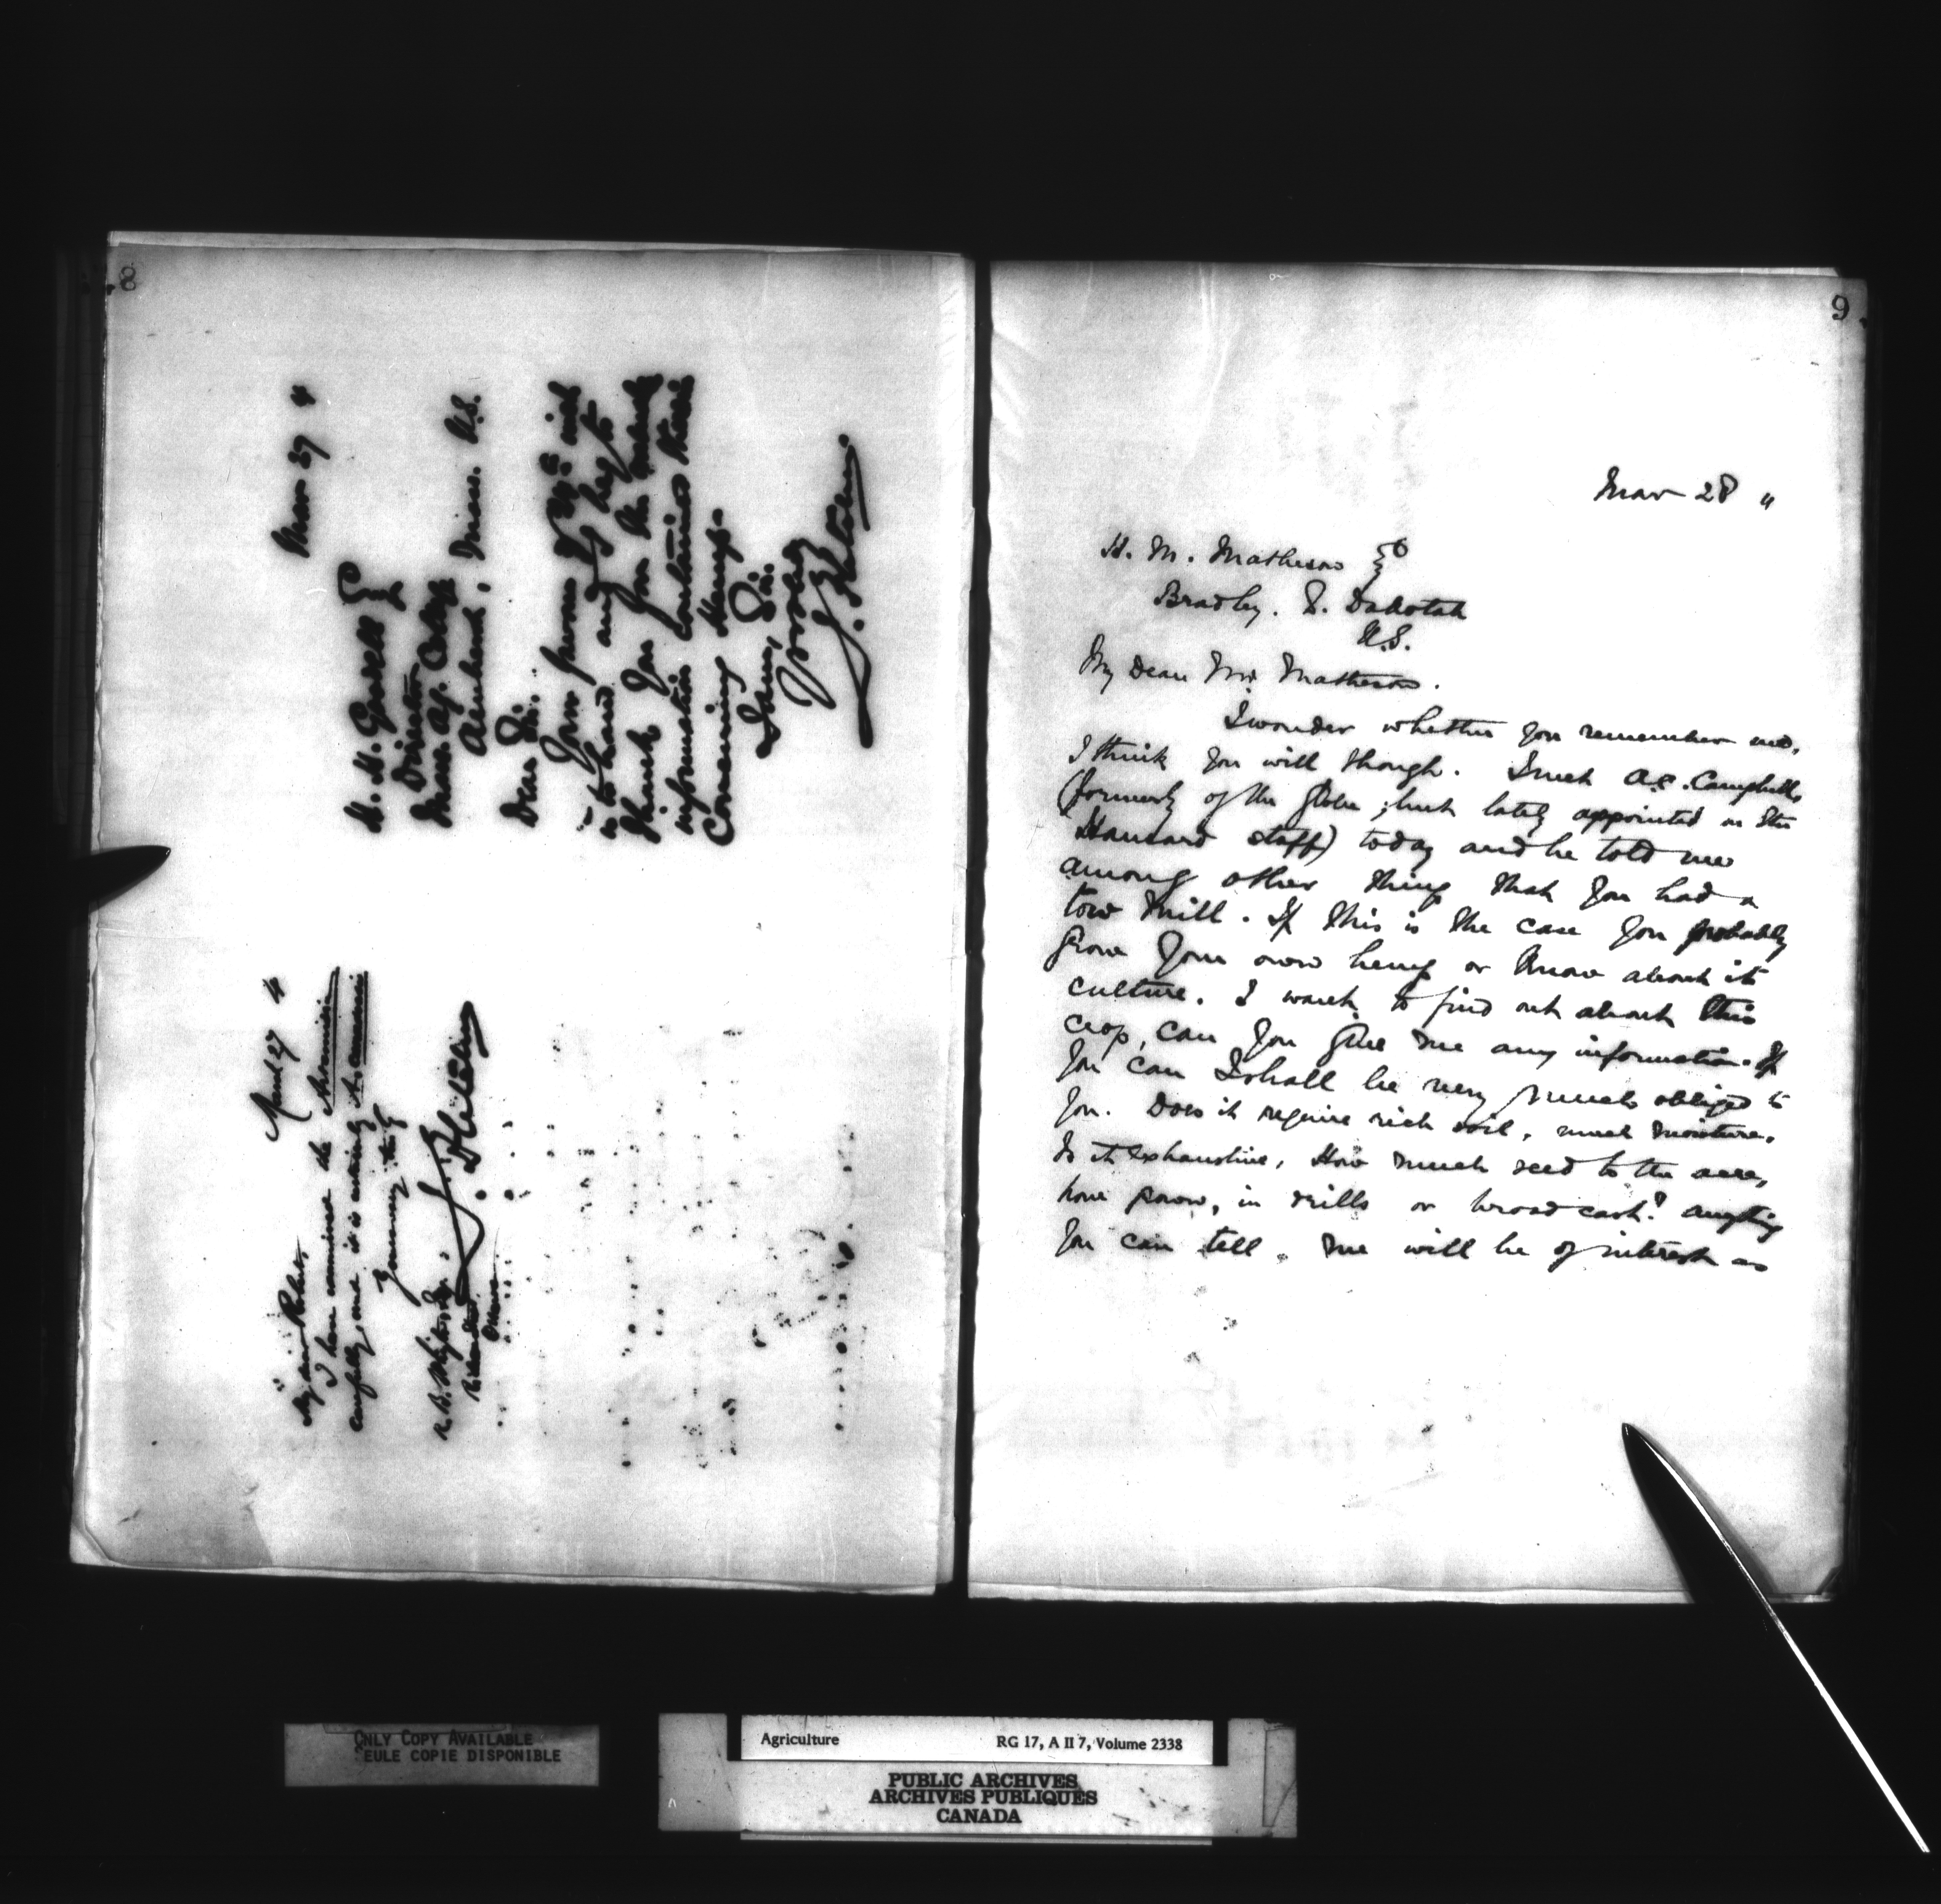 8
Mar 27 "
H. H. Goodell Esq
Director
Mass. Ag. College
Amherst, Mass. U.S.
Dear Sir.
Your favour of 24th inst
is to hand and I beg to
thank you for the
information contained therein
Concerning Hemp.
I am, Dr. Sir.
Yrs truly
J. Fletcher
March 27 "
My dear
I have examined the
carefully, and it is entirely
Yours very truly
J. Fletcher
R. B. Whyte Esq.
Ottawa
9
Mar 28 "
H. M. Matheson Esq
Bradley. S. Dakotah
U.S.
My Dear Mr Matheson.
I wonder whether you remember me,
I think you will though. I met A.C. Campbell,
(formerly of the Globe; but lately appointed on the
Hansard staff) today and he told me
among other things that you had a
tow mill. If this is the case you probably
grow your own hemp or know about its
culture. I want to find out about this
crop, can you give me any information. If
you can I shall be very much obliged to
you. Does it require rich soil, much moisture.
Is it exhaustive, How much seed to the acre,
how sown, in drills or broadcast? Anything
you can tell me will be of interest as
ONLY COPY AVAILABLE
SEULE COPIE DISPONIBLE
Agriculture RG 17, A II 7, Volume 2338
PUBLIC ARCHIVES
ARCHIVES PUBLIQUES
CANADA